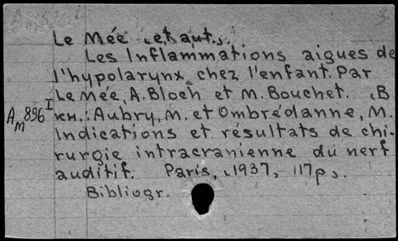 Le Mée ‹et aut.›.
Les Inflammations aigues de
l'hypolarynx chez l'enfant. Par
Le Mée, A. Bloch et M. Bouchet. ‹В
кн.: Aubry, M. et Ombrédanne, M.
Indications et résultats de chi-
rurgie intracranienne du nerf
auditif. Paris, ‹1937, 117p›.
Bibliogr.
Am 896 I